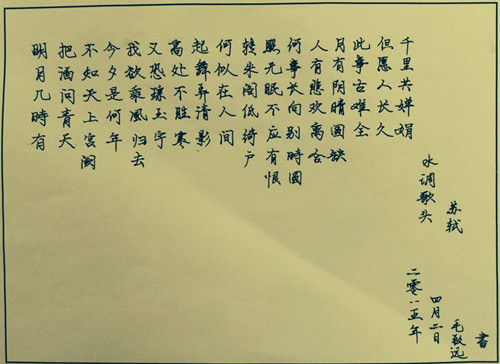 明月几時有
把酒问青天
不知天上宫阙
今夕是何年
我欲乘風归去
又恐琼玉宇
高处不胜寒
起舞弄清影
何似在人间
转朱阁低绮户
照无眠不应有恨
何事长向别時圆
人有悲欢离合
月有阴晴圆缺
此事古难全
但愿人长久
千里共婵娟
水调歌头
苏轼
二零一五年
四月二日
毛致远
書